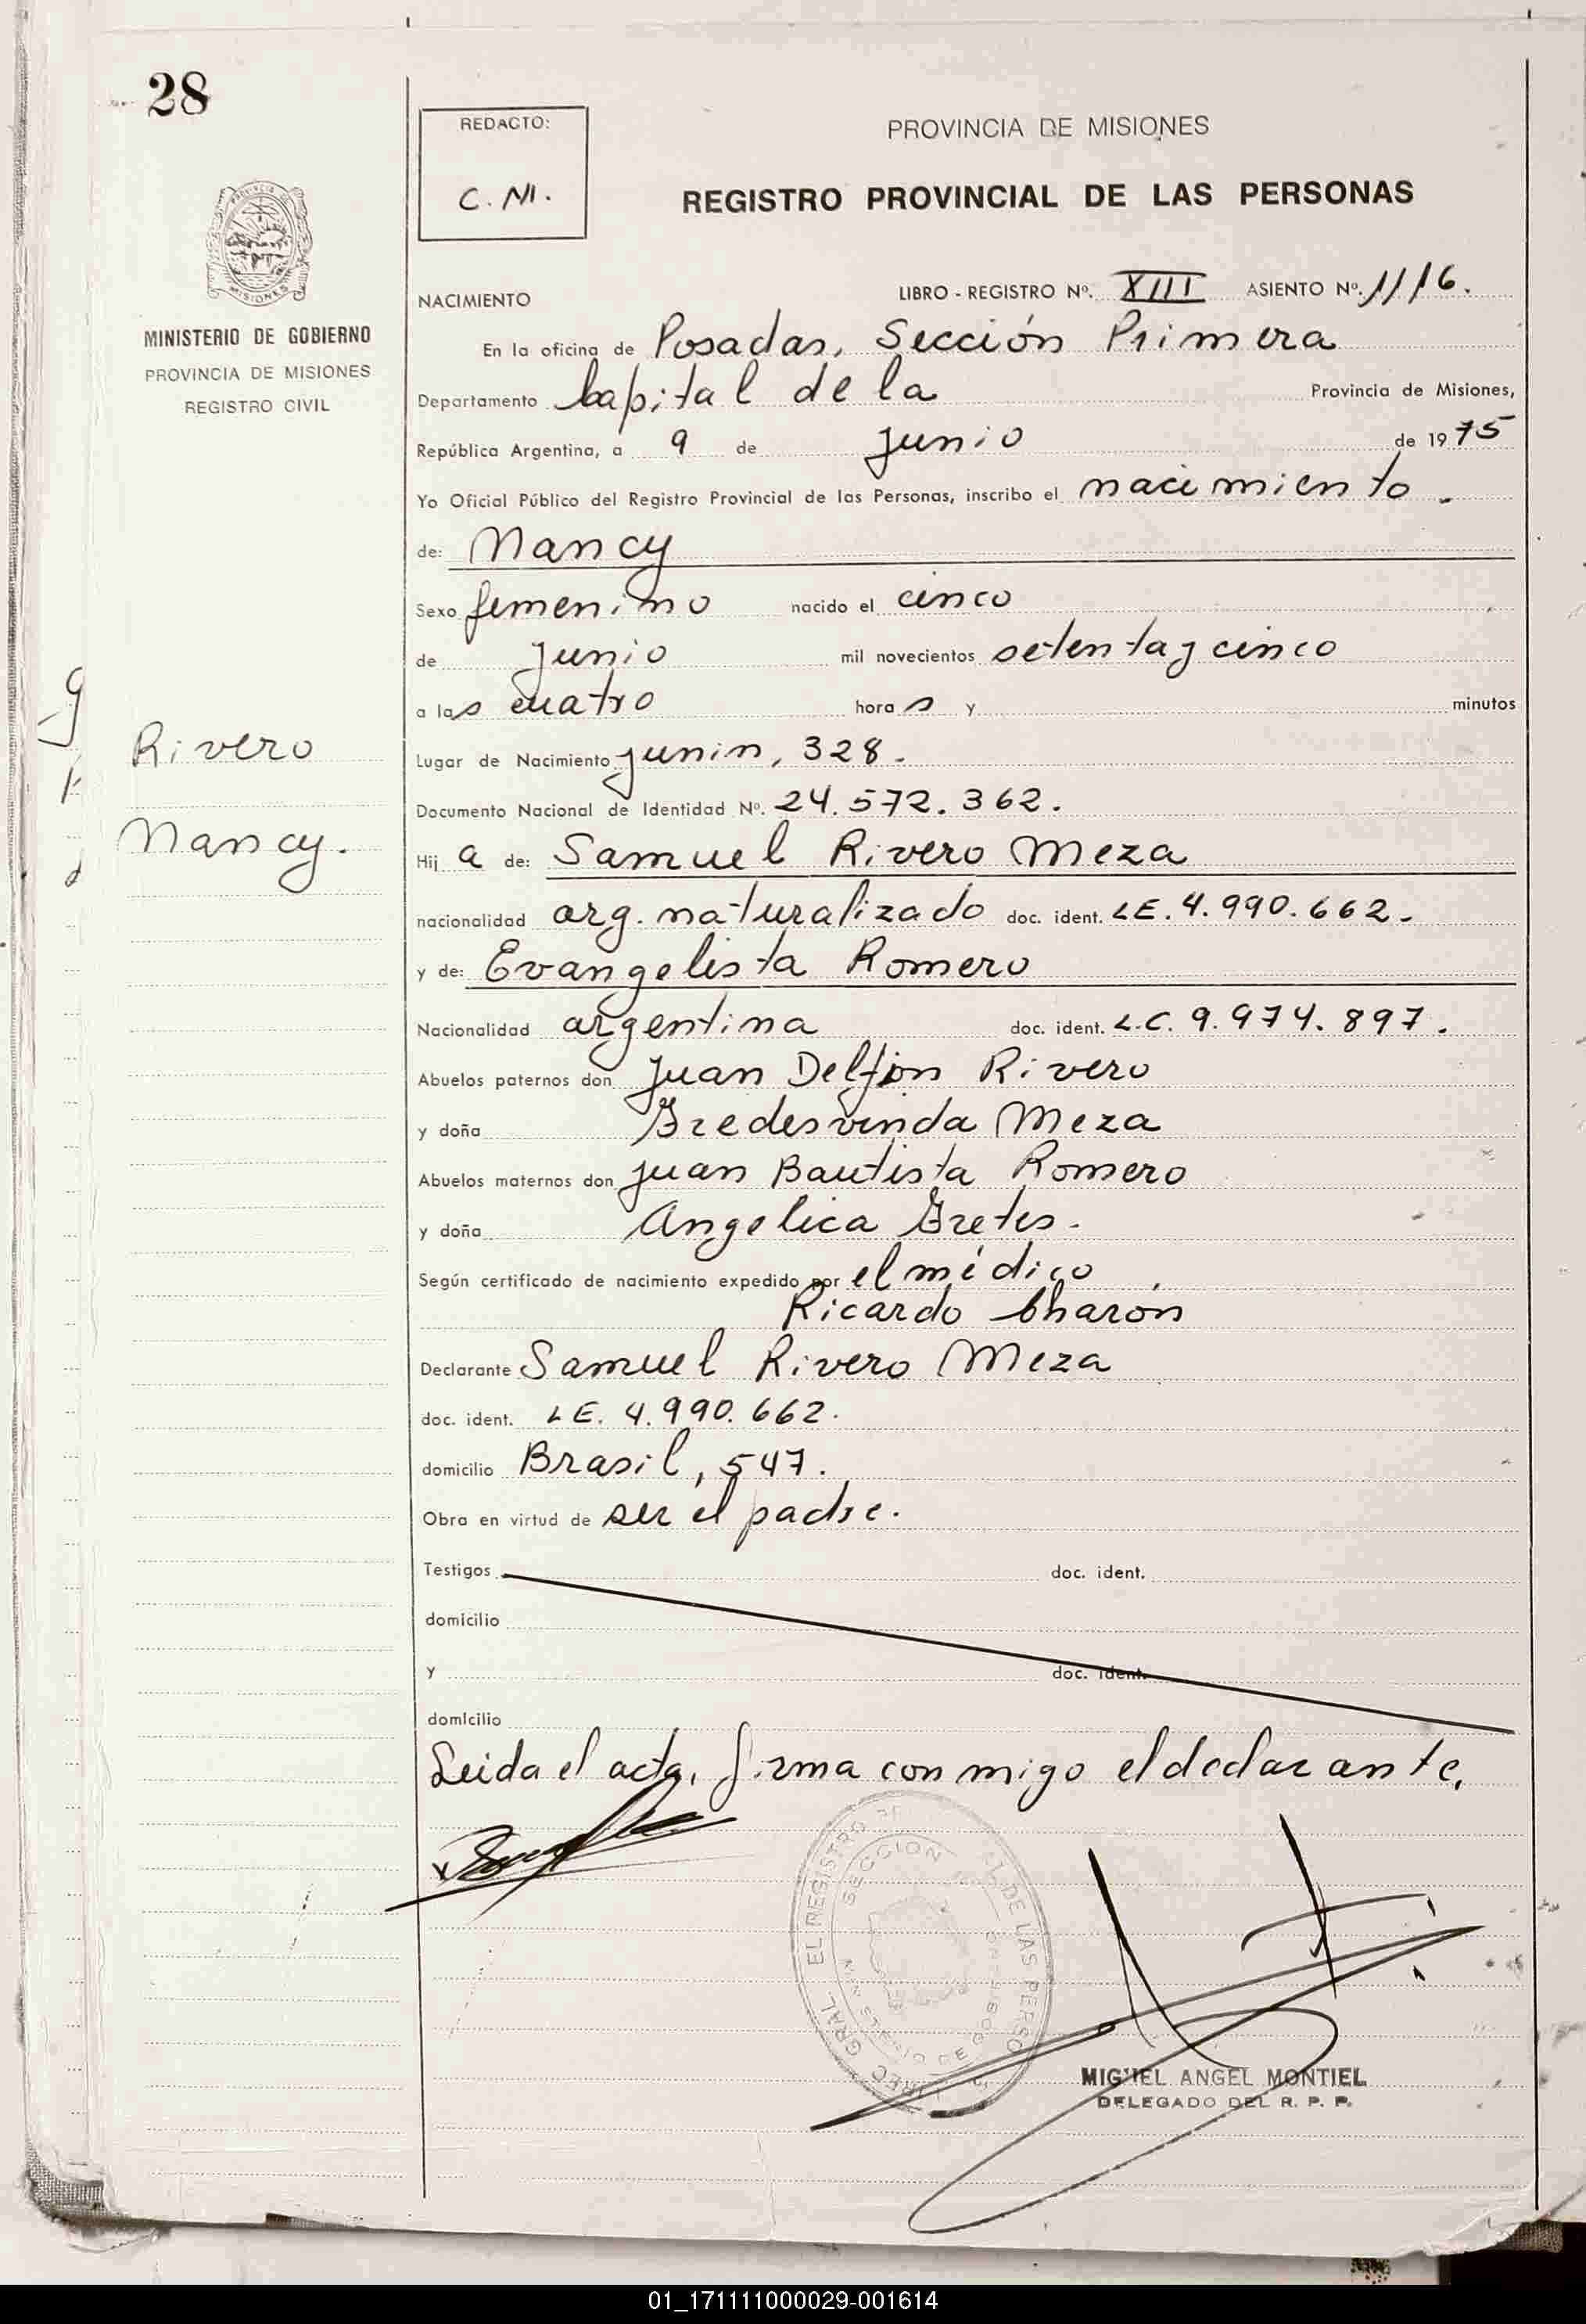 28
REDACTO:
C. M.
PROVINCIA DE MISIONES
REGISTRO PROVINCIAL DE LAS PERSONAS
MISIONES
MINISTERIO DE GOBIERNO
PROVINCIA DE MISIONES
REGISTRO CIVIL
NACIMIENTO
LIBRO - REGISTRO Nº. XIII ASIENTO Nº. 1116.
En la oficina de Posadas, Sección Primera
Departamento Capital de la Provincia de Misiones,
República Argentina, a 9 de junio de 1975
Yo Oficial Público del Registro Provincial de las Personas, inscribo el nacimiento.
de: Nancy
Sexo femenino nacido el cinco
de junio mil novecientos setenta y cinco
a las cuatro horas y minutos
Lugar de Nacimiento junin, 328.
Documento Nacional de Identidad Nº. 24.572.362.
Hija de: Samuel Rivero Meza
nacionalidad arg. naturalizado doc. ident. LE. 4.990.662.
y de: Evangelista Romero
Nacionalidad argentina doc. ident. L.C. 9.974.897.
Abuelos paternos don Juan Delfin Rivero
y doña Gredesvinda Meza
Abuelos maternos don Juan Bautista Romero
y doña Angelica
Según certificado de nacimiento expedido por el médico
Ricardo Charón
Declarante Samuel Rivero Meza
doc. ident. LE. 4.990.662.
domicilio Brasil, 547.
Obra en virtud de ser el padre.
Testigos doc. ident.
domicilio
y doc. ident.
domicilio
Leida el acta, firma conmigo el declarante.
Rivero
Nancy.
MIGUEL ANGEL MONTIEL
DELEGADO DEL R. P. P.
01_171111000029-001614